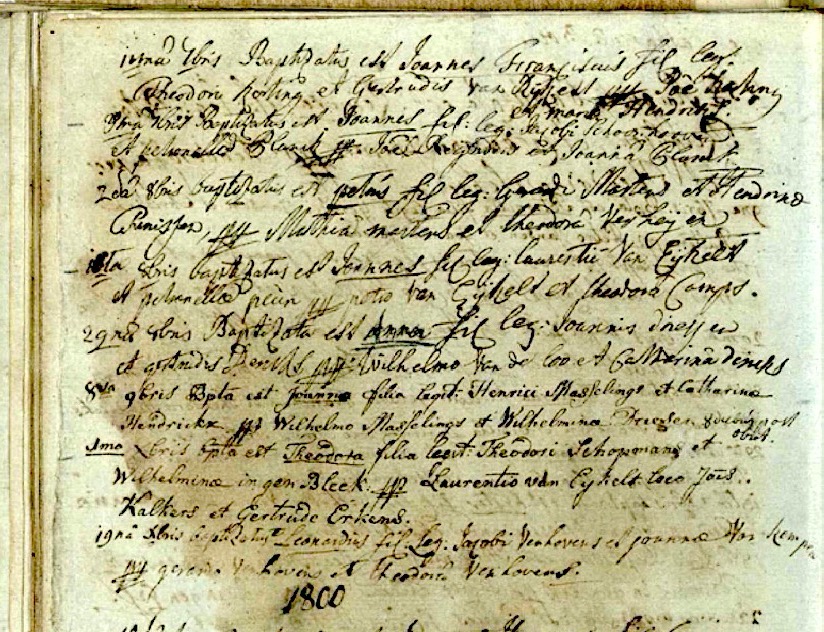 7bris Baptizatus est Joannes Franciscus fil leg:
Theodori Korting et Gertrudis van
et Hendriks.
7bris Baptizatus est Joannes fil: leg: Jacobi
et petronella Blanck pp: et Joanna Blanck
2da 8bris baptizatus est petrus fil leg: Martens et Hendrina
Theunissen, pp Mathia mertens et theodora verheyen
8bris baptizatus est Joannes fil leg: laurentii van Eykelt
et petronella pp van Eykelt et theodora Camps.
29na 8bris Baptizata est Anna fil leg: Joannis driessen
et gertrudis Dencks pp: Wilhelmo van de Loo et Catharina dencks
8va 9bris Bpta est Joanna filia legit: Henrici Masselings et Catharinæ
Hendrickx. pp Wilhelmo Masselings et Wilhelmina Driesen 8 diebus post
obiit.
1ma Xbris bpta est Theodora filia legit: Theodori Schopmans et
Wilhelminæ in gen Bleek. pp Laurentio van Eykelt loco Jois.
Kalkers et Gertrude Erkens.
19na Xbris baptizatus Leonardus fil. leg. Jacobi Verhovens et joannæ Van Kempen
pp gerardo Verhovens et theodora Verhovens.
1800